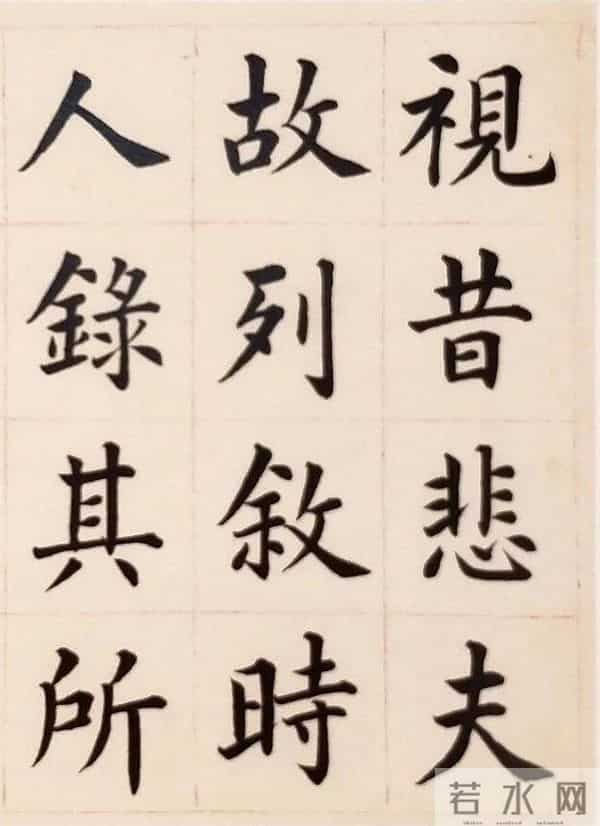 視昔悲夫
故列敘時
人錄其所
若水网